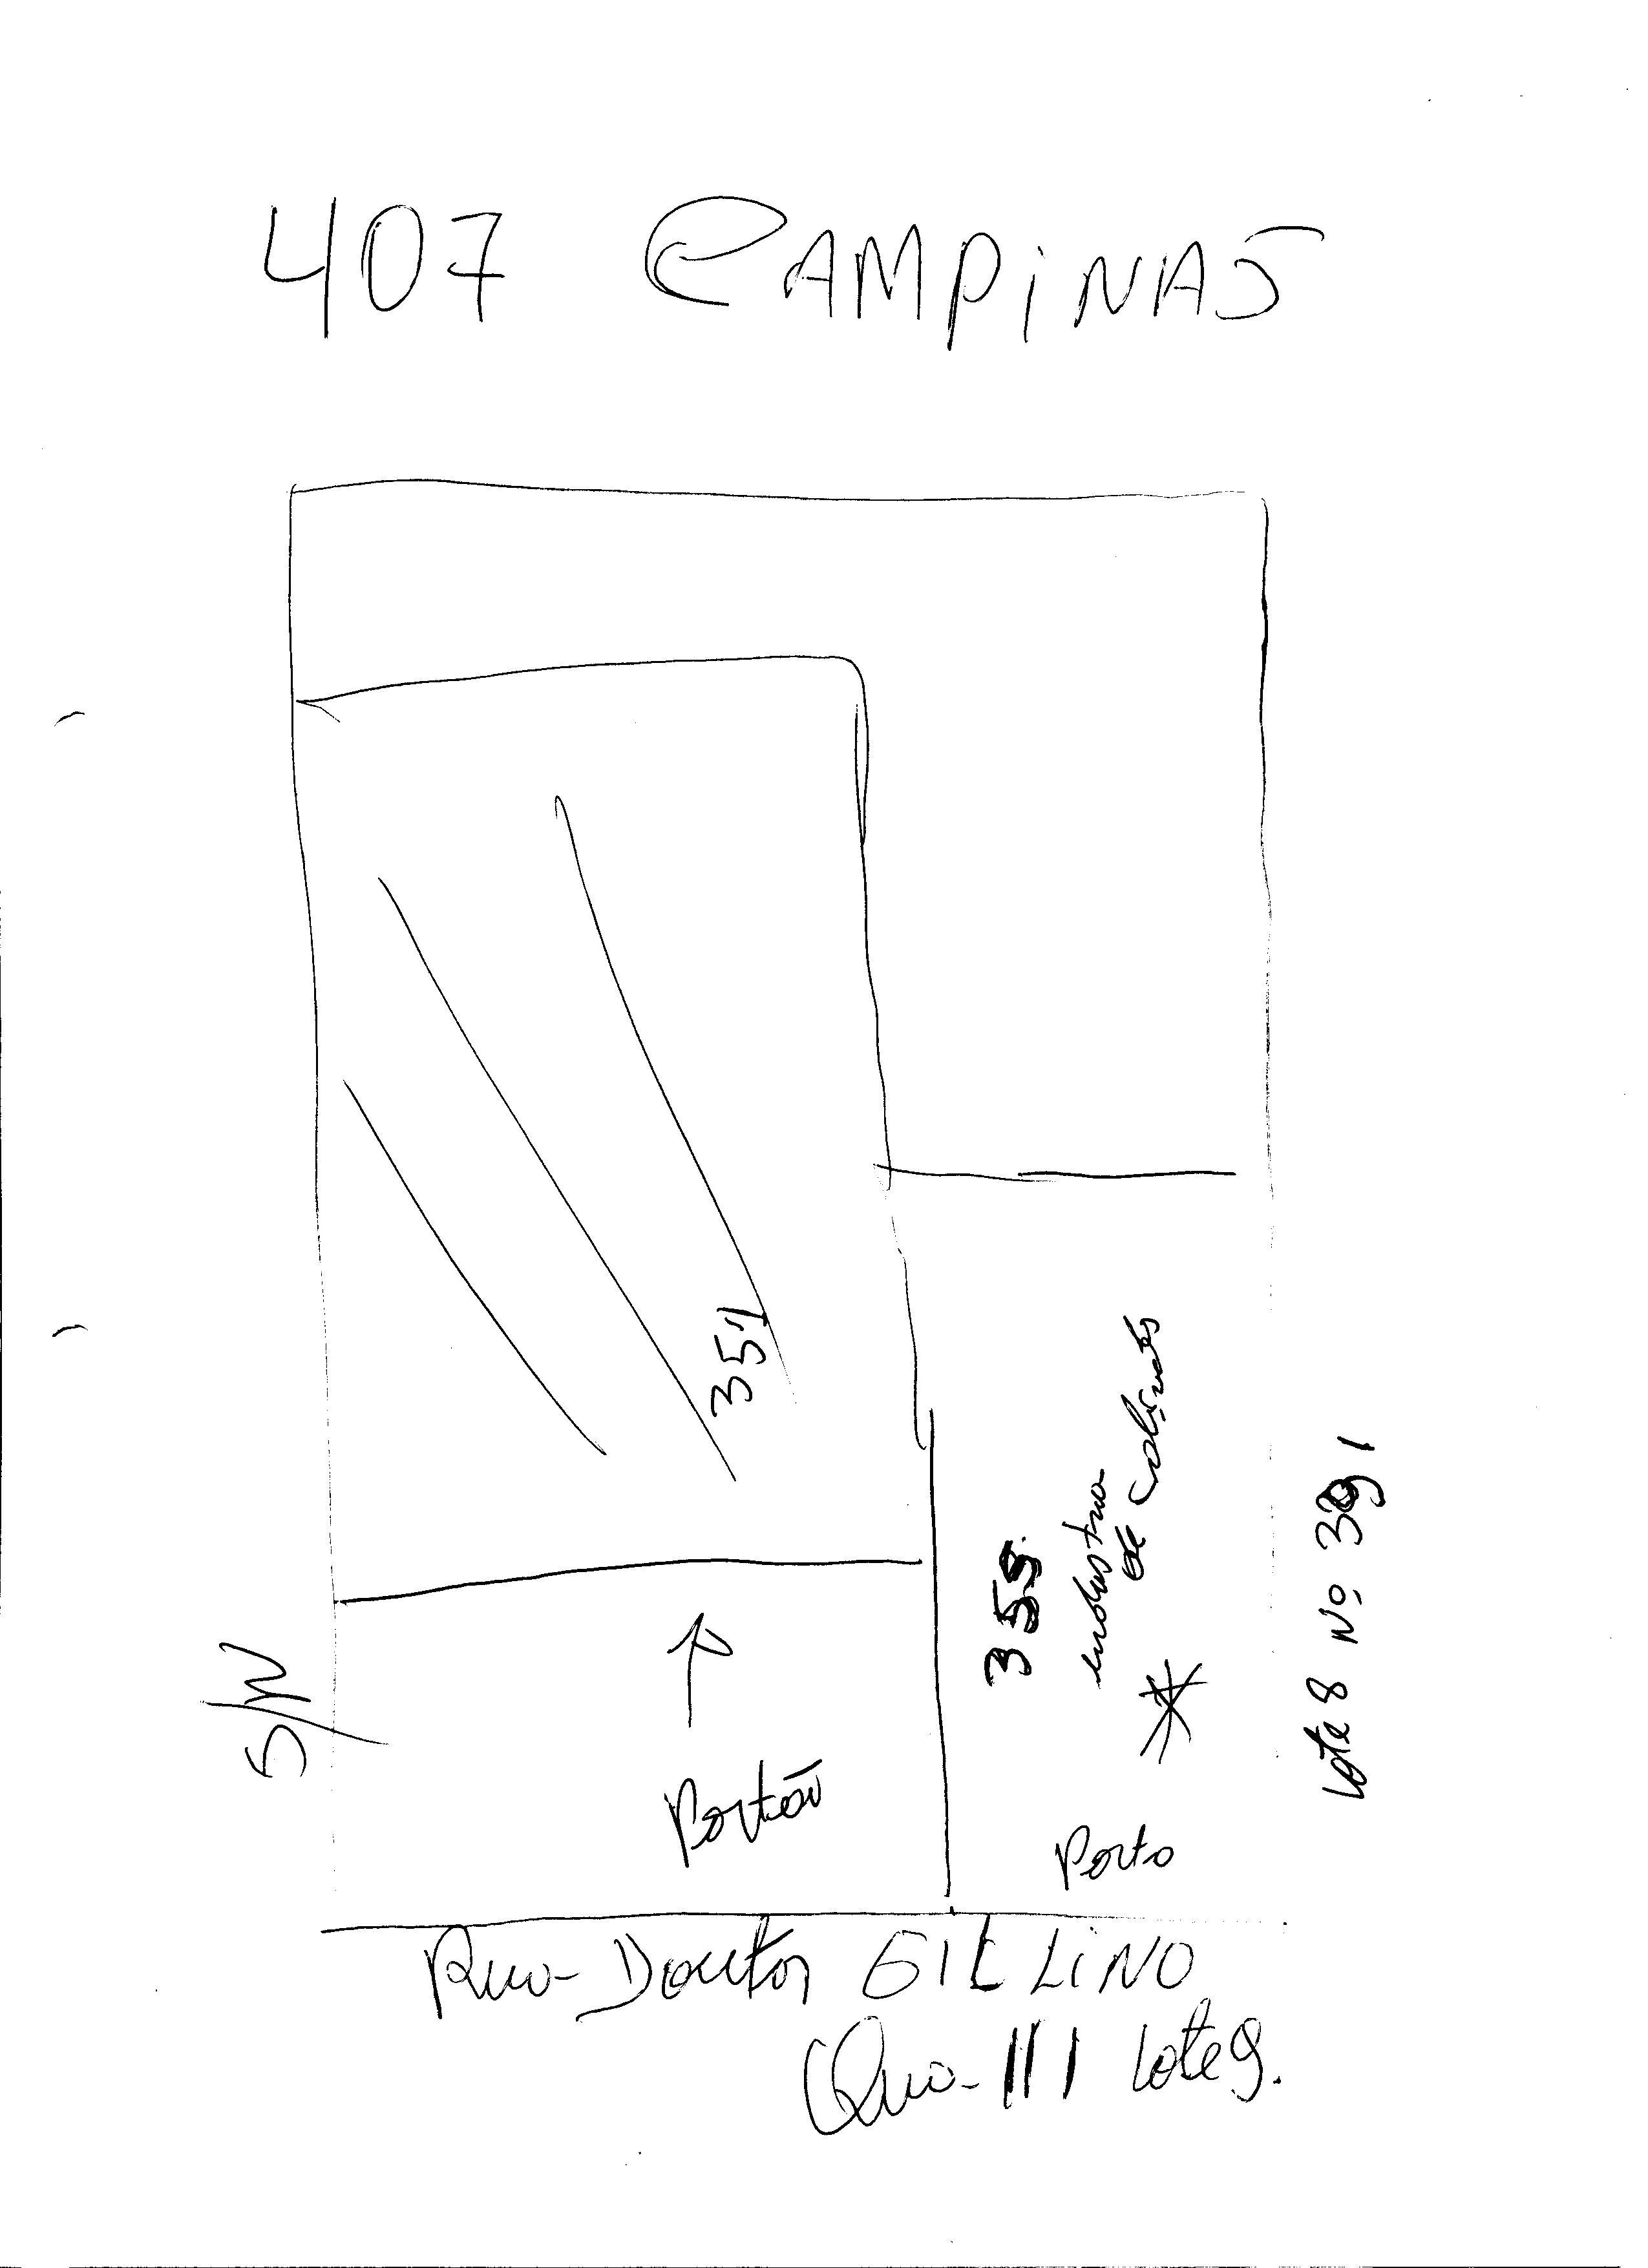 407 CAMPINAS
351
359.
industria
de calçados
Lote 8 Nº 391
S/N
Portão
Porto
Rua-Doutor GIL LINO
Qua-111 Lote 9.